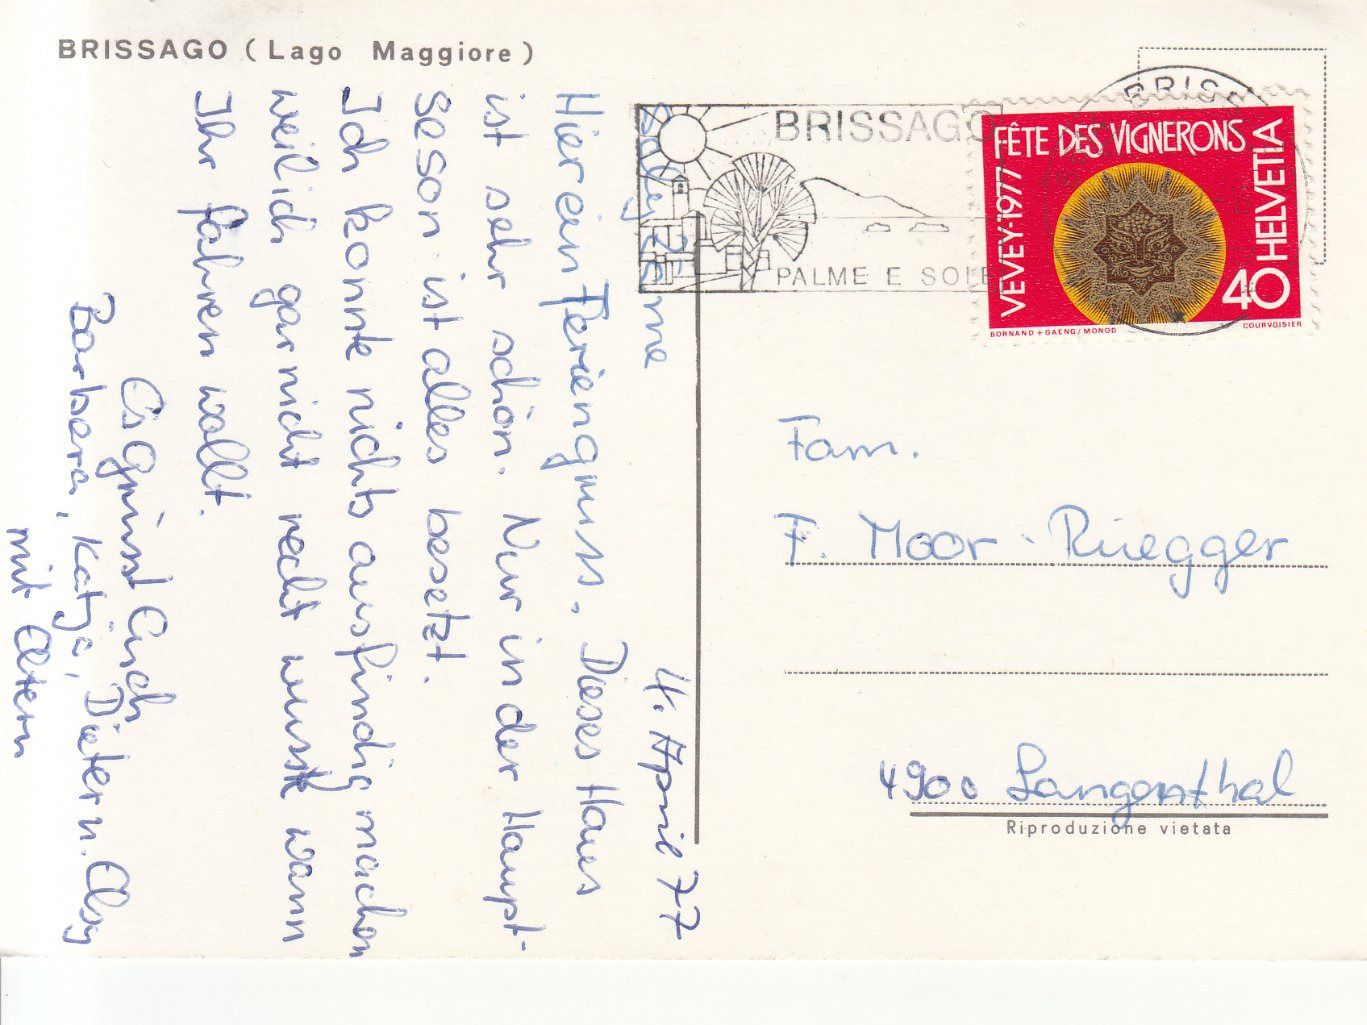 BRISSAGO (Lago Maggiore)
4. April 77
Hier ein Feriengruss. Dieses Haus
ist sehr schön. Nur in der Haupt-
sesson ist alles besetzt.
Ich konnte nichts ausfindig machen
weil ich gar nicht recht wusste wann
Ihr fahren wollt.
Es grüsst Euch
Barbara, Katja, Dieter u. Elsy
mit Eltern
BRISSAGO
PALME E SOLE
BRISS
FÊTE DES VIGNERONS
VEVEY·1977
HELVETIA
40
BORNAND + GAENG / MONOD
COURVOISIER
Fam.
F. Moor-Rüegger
4900 Langenthal
Riproduzione vietata